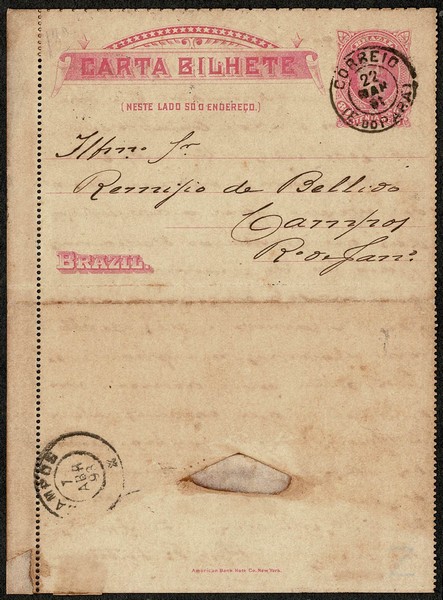 CARTA BILHETE
(NESTE LADO SÓ O ENDEREÇO.)
CORREIO
22
MAR
91
(E. DO PARÁ)
Illmo. Sr.
Remisio de Bellido
Campos
Ro. de Jano.
BRAZIL.
CAMPOS
7
ABR
American Bank Note Co. New York.